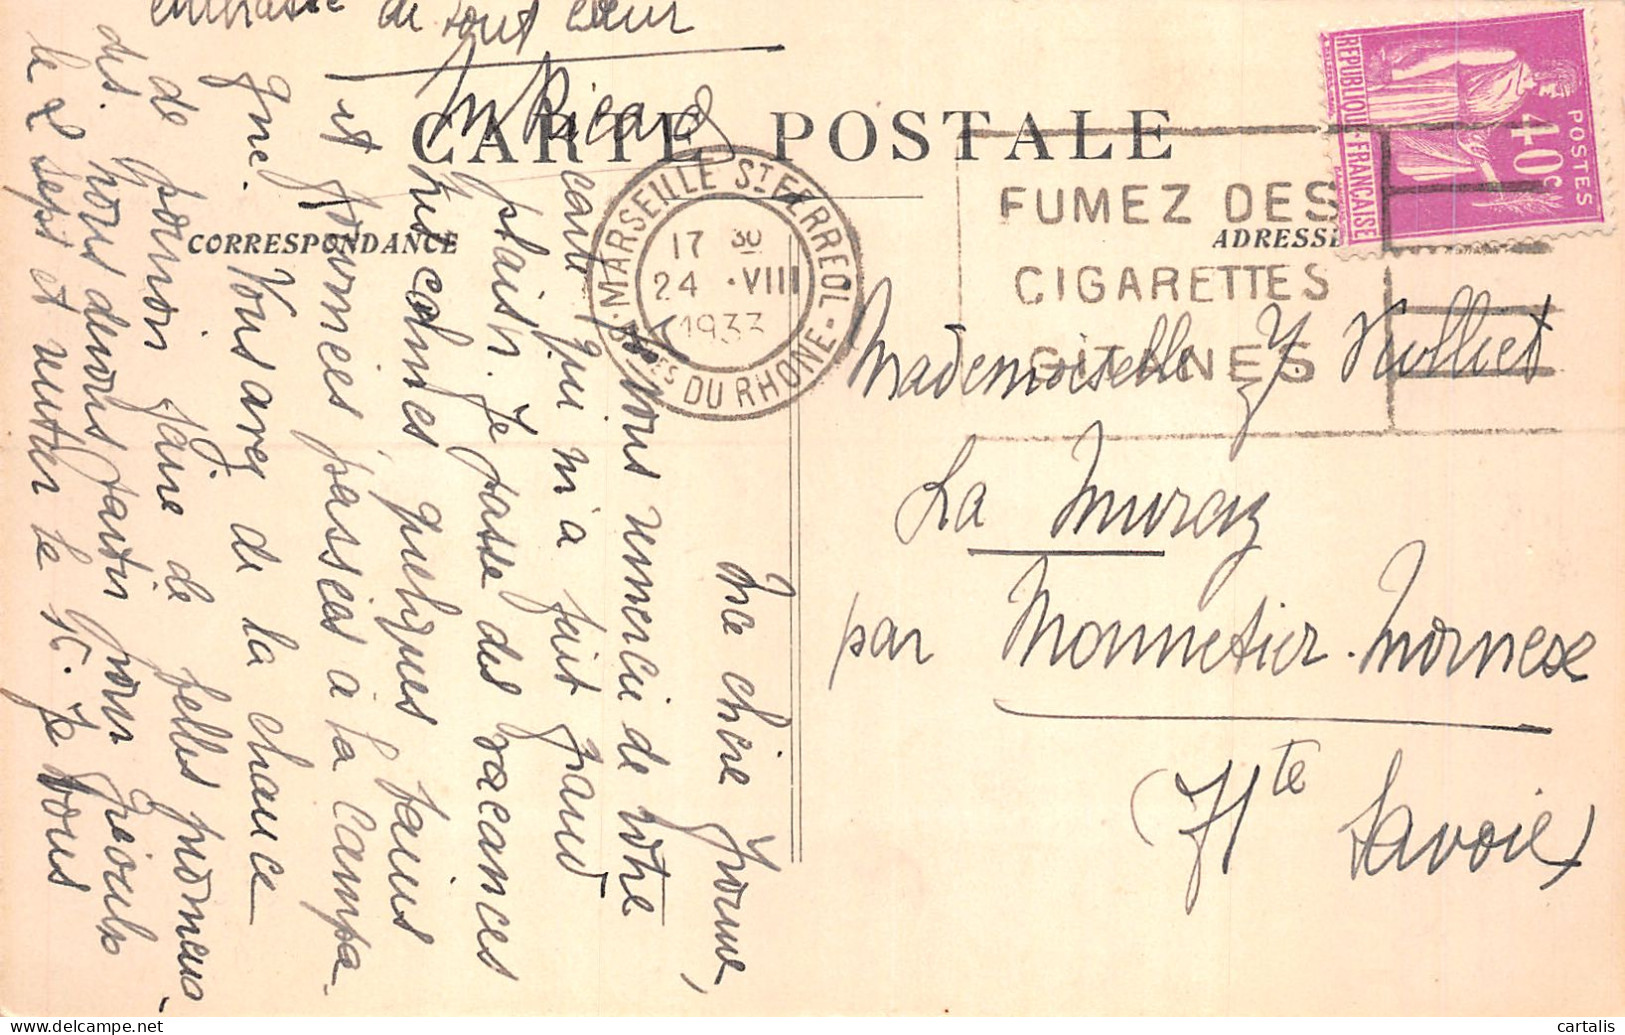 CARTE POSTALE
CORRESPONDANCE
ADRESSE
REPUBLIQUE·FRANÇAISE
POSTES
40c
MARSEILLE ST FERREOL
B.ches DU RHONE
17 30
24 ·VIII
1933
FUMEZ DES
CIGARETTES
GITANES
Mademoiselle Y. Vulliet
La Muraz
par Monnetier-Mornex
Hte Savoie
Ma chère Yvonne,
Je vous remercie de votre
carte qui m'a fait grand
plaisir. Je passe des vacances
très calmes quelques jours
et journées passées à la Campa-
gne. Vous avez de la chance
de pouvoir faire de belles promena-
des. Nous devons partir pour Gréoulx
le 2 sept et rentrer le 15. Je vous
embrasse de tout cœur
M Ricard
cartalis